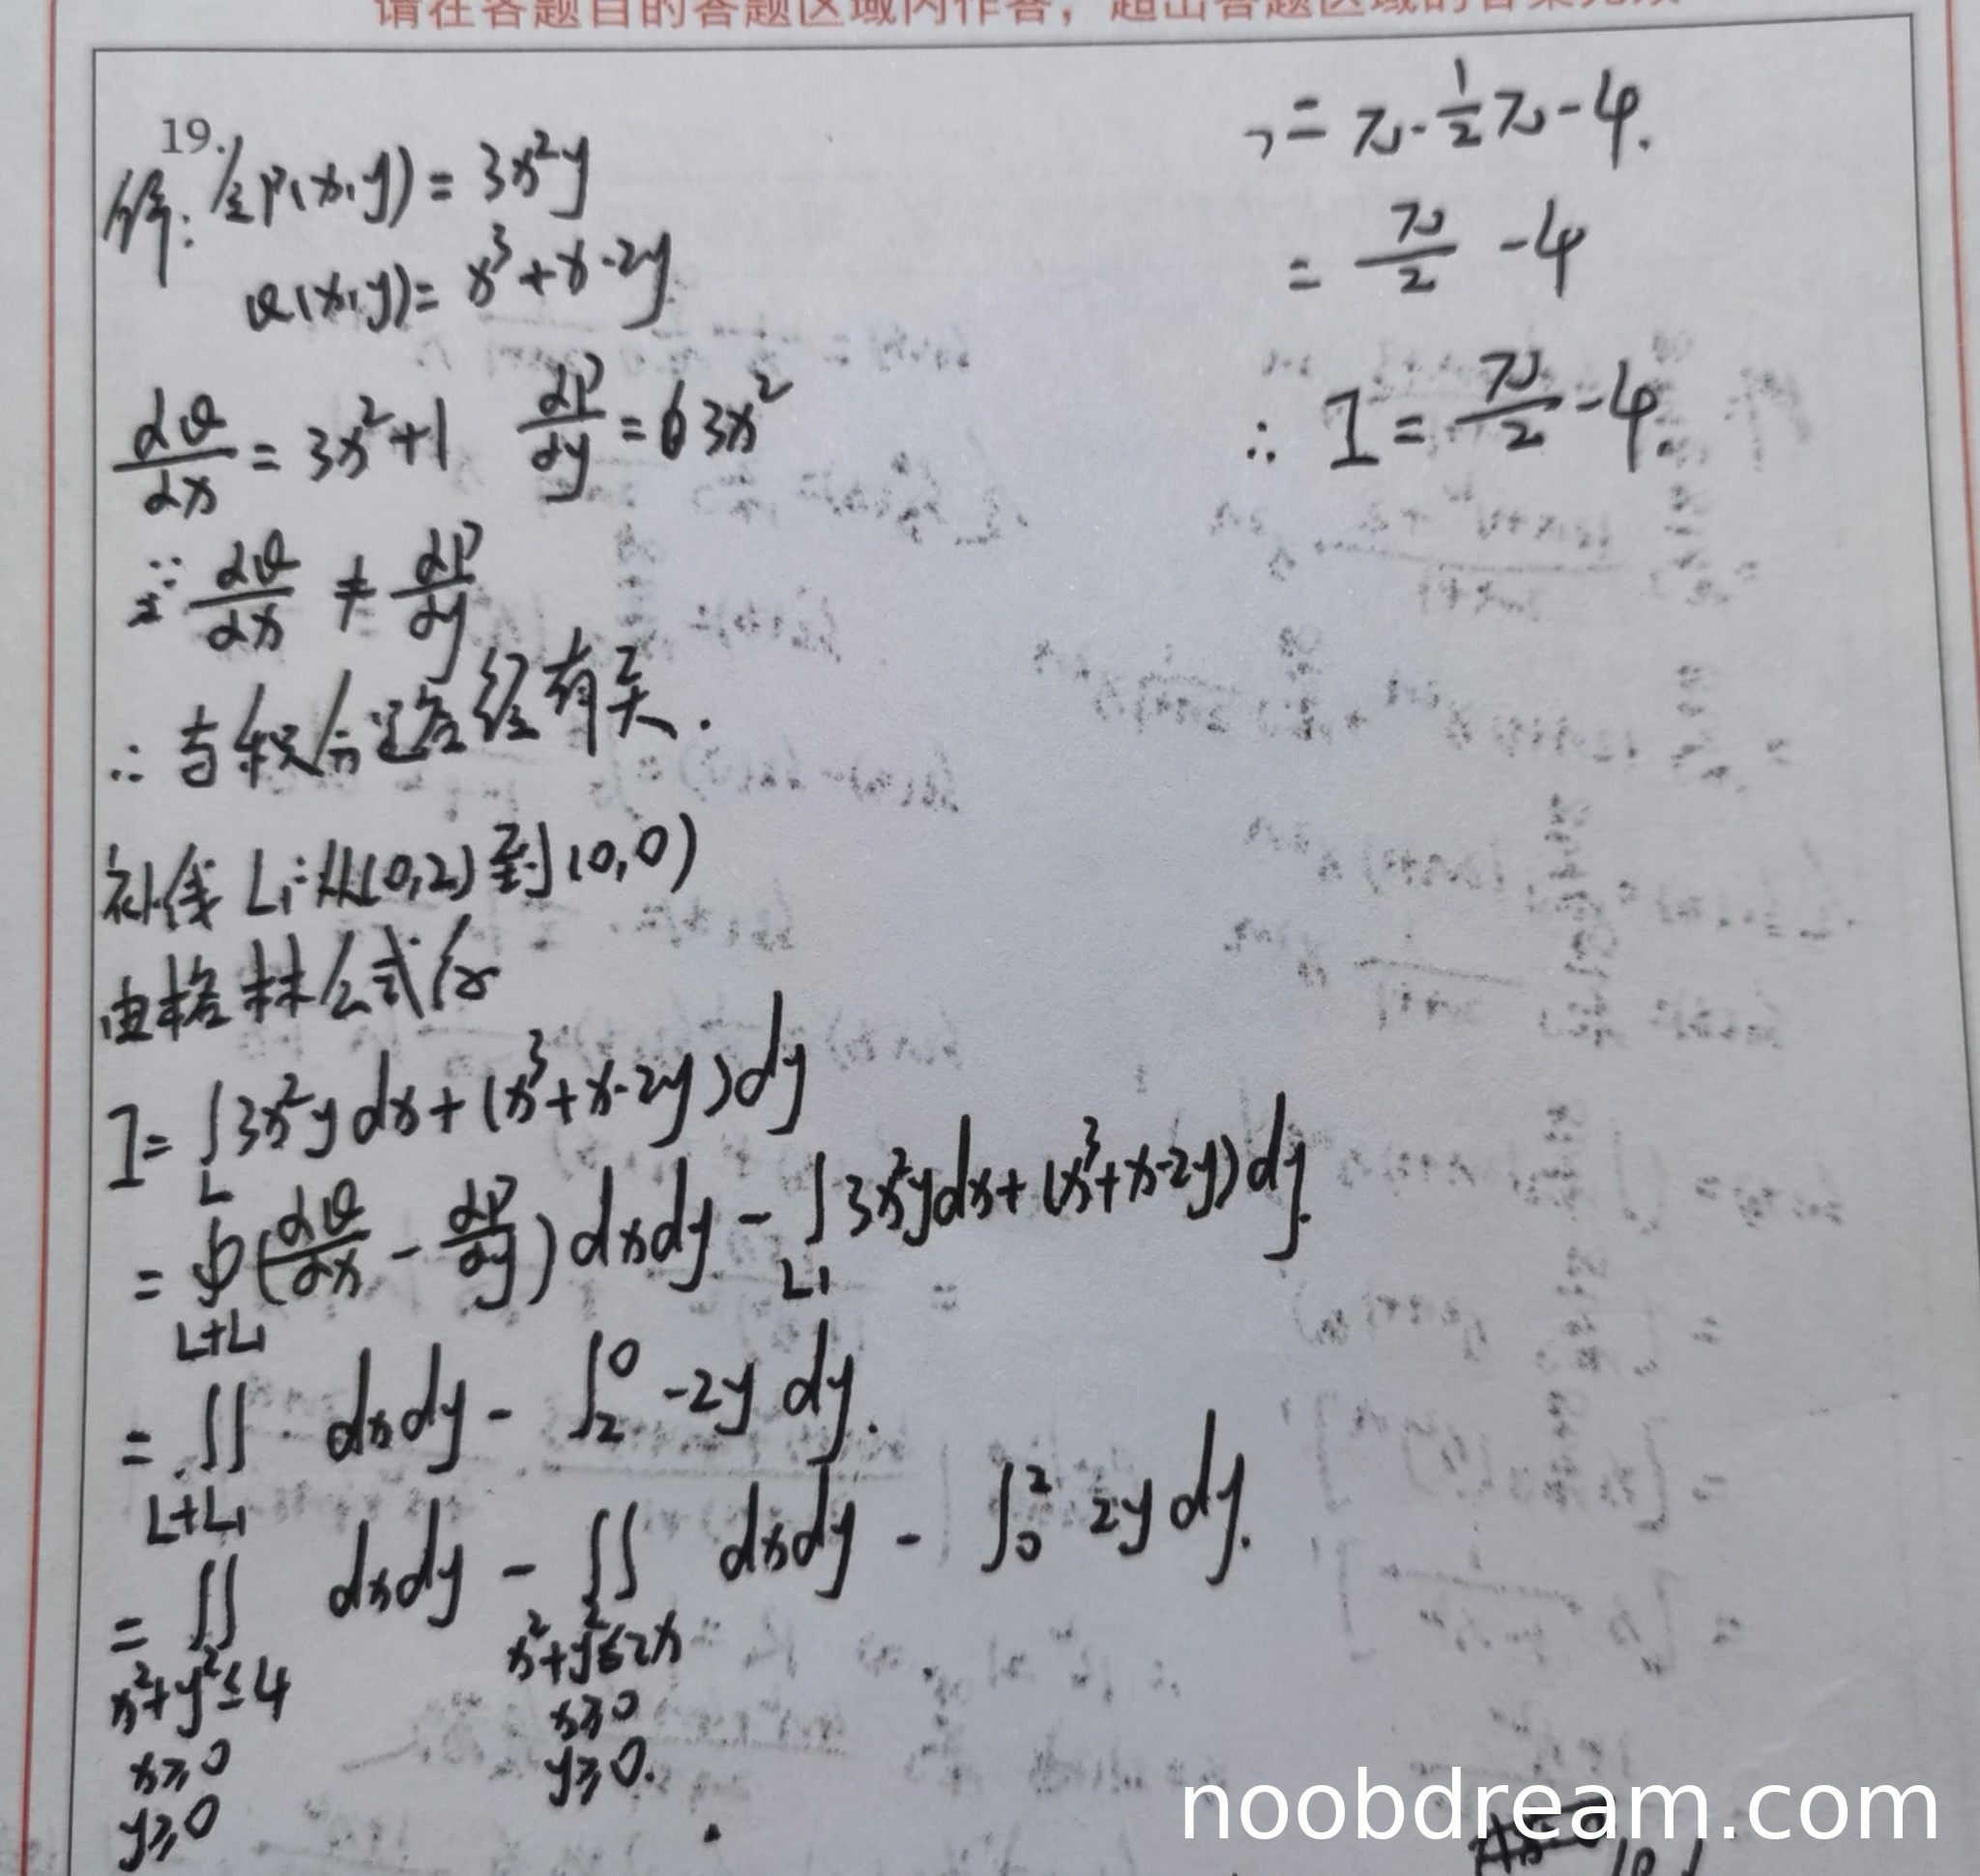 请在各题目的答题区域内作答，超出答题区域的答案无效
19.
解：令P(x,y) = 3x²y
Q(x,y) = x³+x-2y
∂Q/∂x = 3x²+1 ∂P/∂y = 3x²
∵ ∂Q/∂x ≠ ∂P/∂y
∴ 与积分路径有关.
补线 L₁: 从(0,2)到(0,0)
由格林公式得
I = ∫_L 3x²y dx + (x³+x-2y)dy
= ∮_{L+L₁} (∂Q/∂x - ∂P/∂y) dxdy - ∫_{L₁} 3x²ydx + (x³+x-2y)dy.
= ∬_{L+L₁} dxdy - ∫₂⁰ -2y dy.
= ∬ dxdy - ∬ dxdy - ∫₀² 2y dy.
x²+y²≤4 x²+y²≤2x
x≥0 x≥0
y≥0 y≥0.
= π - ½π - 4.
= π/2 - 4
∴ I = π/2 - 4.
noobdream.com